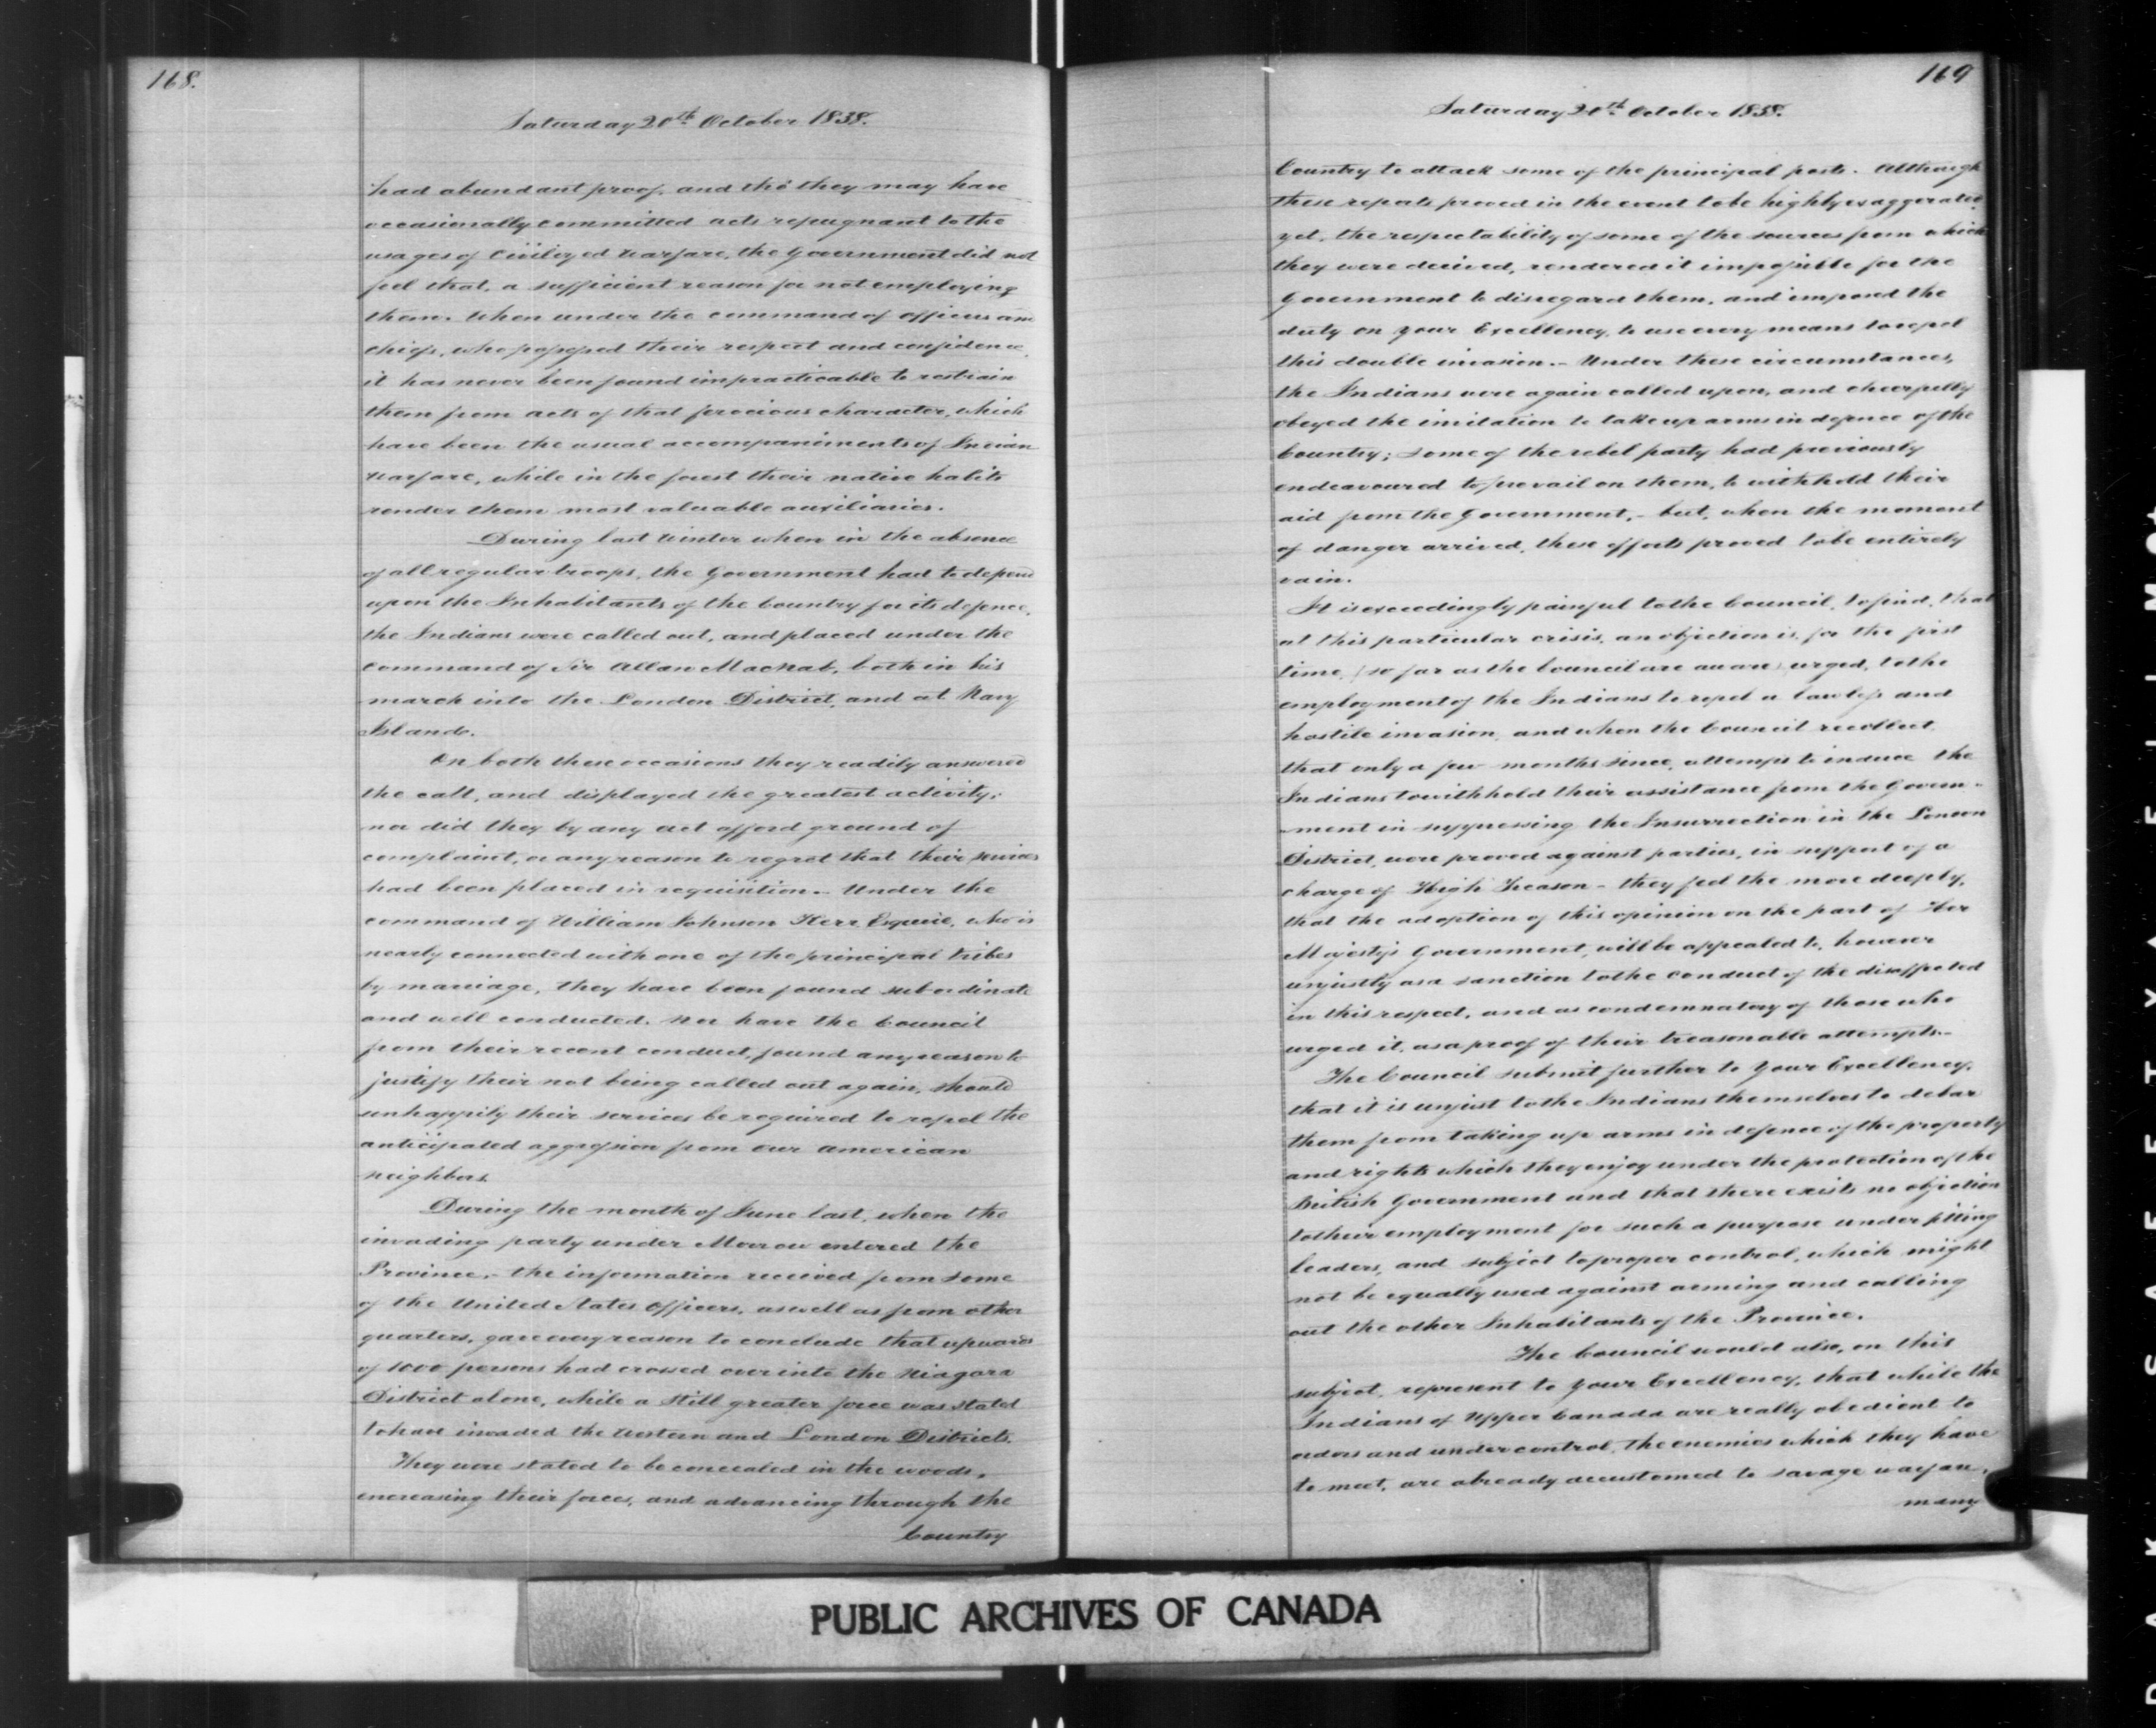 168.
Saturday 20th October 1838.
had abundant proof, and tho' they may have
occasionally committed acts repugnant to the
usages of Civilized warfare, the Government did not
feel that, a sufficient reason for not employing
them. When under the command of officers and
chiefs, who possessed their respect and confidence,
it has never been found impracticable to restrain
them from acts of that ferocious character, which
have been the usual accompaniments of Indian
warfare, while in the forest their native habits
render them most valuable auxiliaries.
During last Winter when in the absence
of all regular troops, the Government had to depend
upon the Inhabitants of the Country for its defence,
the Indians were called out, and placed under the
command of Sir Allan MacNab, both in his
march into the London District, and at Navy
Island.
On both these occasions they readily answered
the call, and displayed the greatest activity;
nor did they by any act afford ground of
complaint, or any reason to regret that their services
had been placed in requisition. Under the
command of William Johnson Kerr Esquire, who is
nearly connected with one of the principal tribes
by marriage, they have been found subordinate
and well conducted. Nor have the Council
from their recent conduct, found any reason to
justify their not being called out again, should
unhappily their services be required to repel the
anticipated aggression from our American
neighbors.
During the month of June last, when the
invading party under Morrow entered the
Province,- the information received from some
of the United States Officers, as well as from other
quarters, gave every reason to conclude that upwards
of 1000 persons had crossed over into the Niagara
District alone, while a still greater force was stated
to have invaded the Western and London Districts.
They were stated to be concealed in the woods,
encreasing their forces, and advancing through the
Country
169
Saturday 20th October 1838.
Country to attack some of the principal posts. Although
these reports proved in the event to be highly exaggerated,
yet, the respectability of some of the sources from which
they were derived, rendered it impossible for the
Government to disregard them, and imposed the
duty on Your Excellency, to use every means to repel
this double invasion.- Under these circumstances,
the Indians were again called upon, and cheerfully
obeyed the invitation to take up arms in defence of the
Country; some of the rebel party had previously
endeavoured to prevail on them, to withhold their
aid from the Government,- but, when the moment
of danger arrived, these efforts proved to be entirely
vain.
It is exceedingly painful to the Council, to find, that
at this particular crisis, an objection is, for the first
time, (so far as the Council are aware) urged, to the
employment of the Indians to repel a lawless and
hostile invasion, and when the Council recollect,
that only a few months since, attempts to induce the
Indians to withhold their assistance from the Govern-
-ment in suppressing the Insurrection in the London
District, were proved against parties, in support of a
charge of High Treason - they feel the more deeply,
that the adoption of this opinion on the part of Her
Majesty's Government, will be appealed to, however
unjustly as a sanction to the conduct of the disaffected
in this respect, and as condemnatory of those who
urged it, as a proof of their treasonable attempts.-
The Council submit further to Your Excellency,
that it is unjust to the Indians themselves to debar
them from taking up arms in defence of the property
and rights which they enjoy under the protection of the
British Government and that there exists no objection
to their employment for such a purpose under fitting
leaders, and subject to proper control, which might
not be equally used against arming and calling
out the other Inhabitants of the Province.
The Council would also, on this
subject, represent to Your Excellency, that while the
Indians of Upper Canada are really obedient to
orders and under control, the enemies which they have
to meet, are already accustomed to savage warfare,
many
PUBLIC ARCHIVES OF CANADA